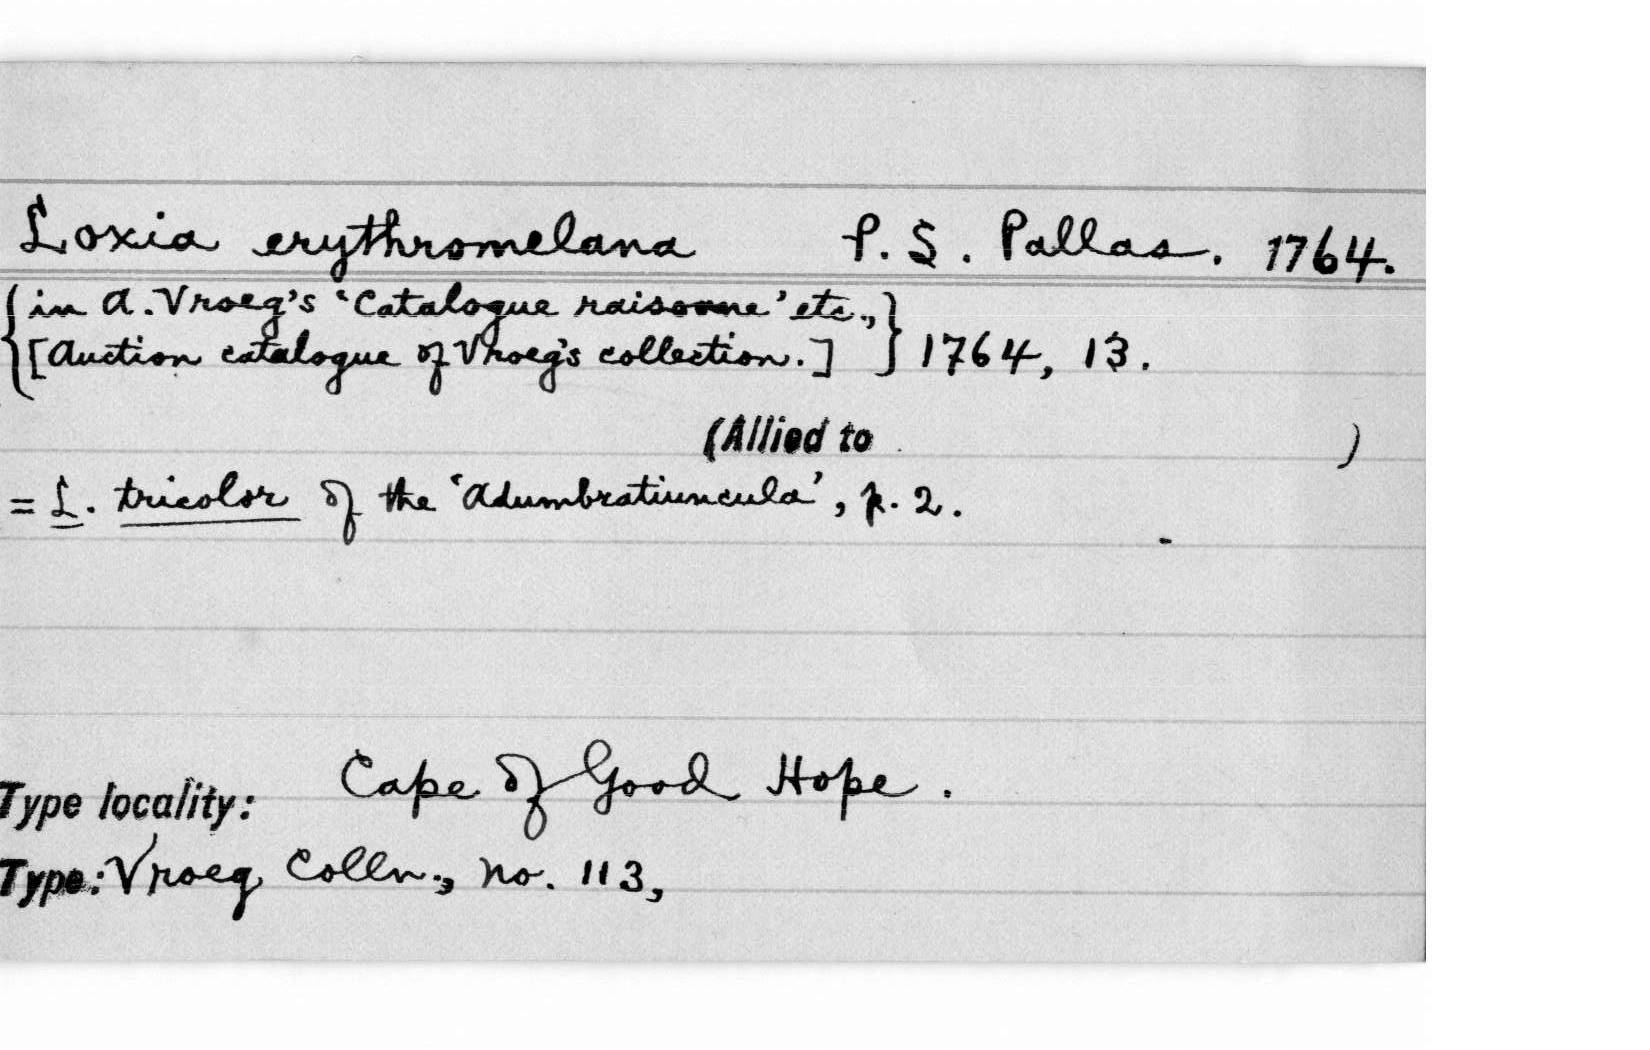 Loxia erythromelana P. S. Pallas. 1764.
{in A. Vroeg's 'Catalogue raisonne' etc.,}
{[Auction catalogue of Vroeg's collection.]} 1764, 13.
(Allied to )
= L. tricolor of the 'Adumbratiuncula', p. 2.
Type locality: Cape of Good Hope.
Type: Vroeg Colln., no. 113,